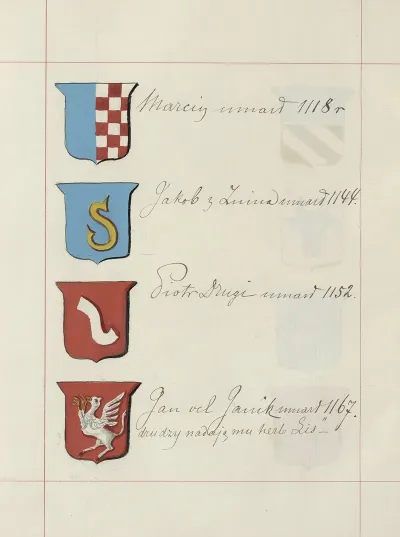 Marcin umarł 1118 r
Jakob z Żnina umarł 1144.
Piotr Drugi umarł 1152.
Jan vel Janik umarł 1167.
drudzy nadają mu herb „Lis"